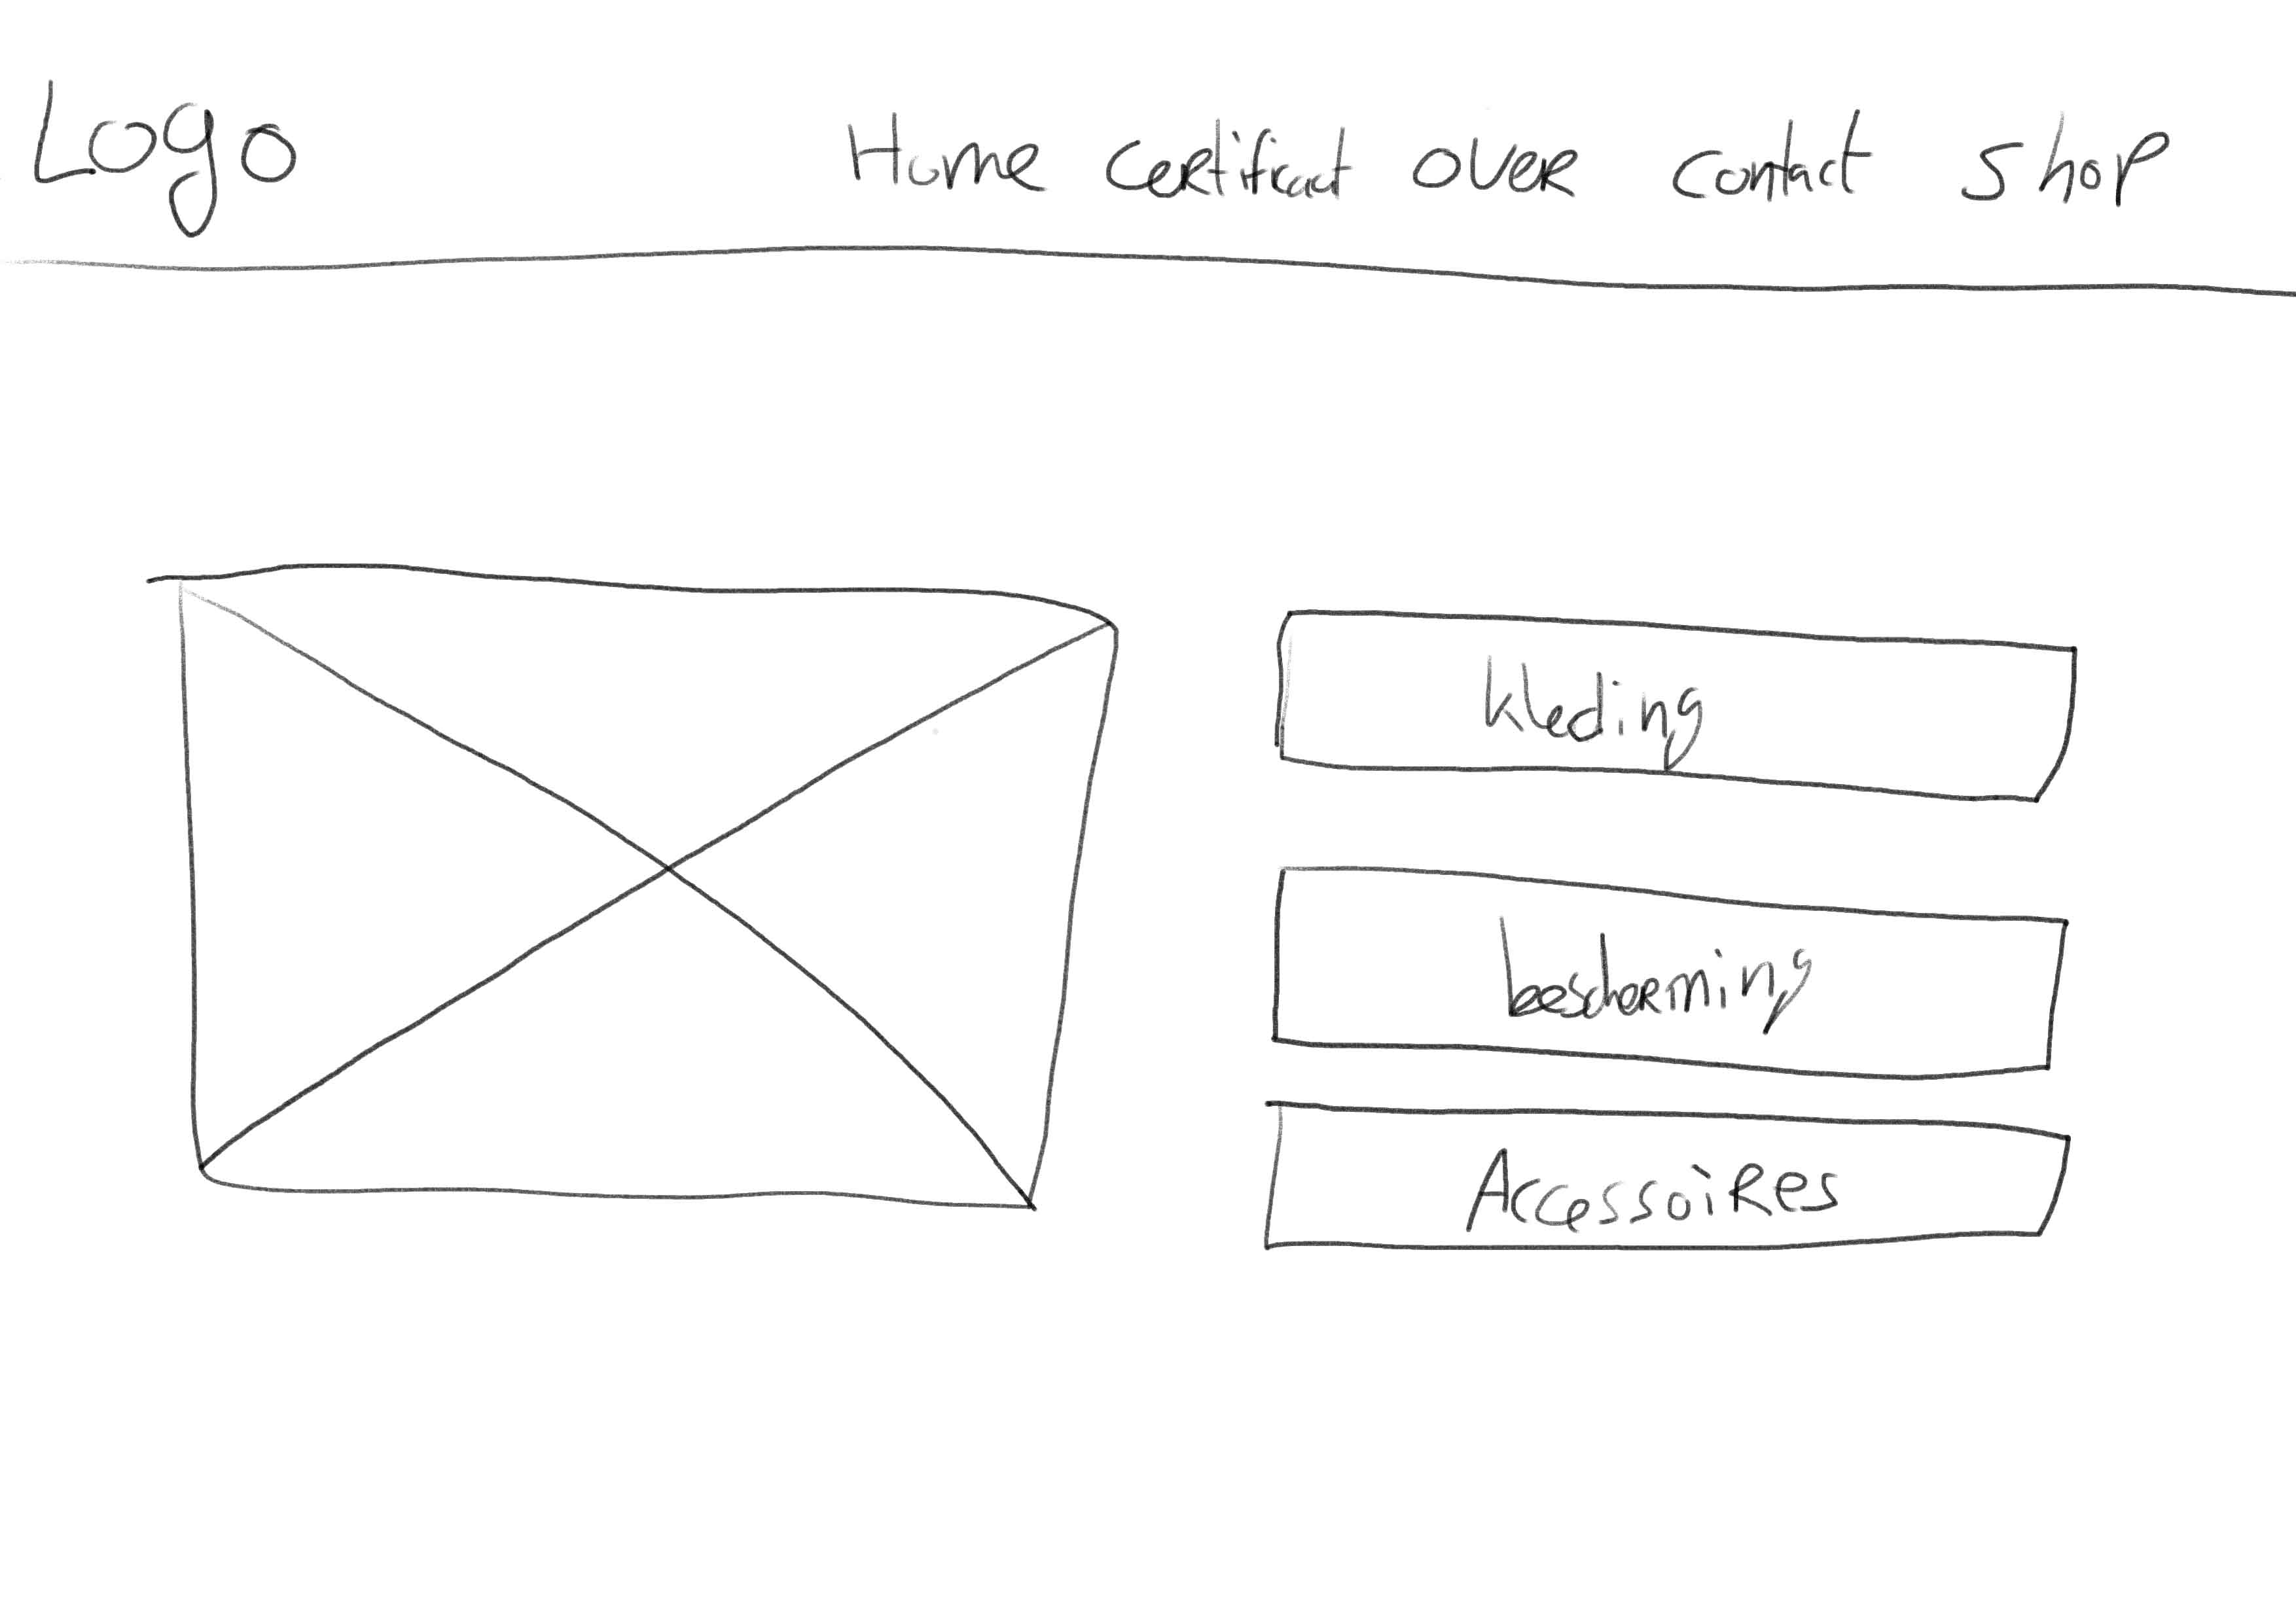 Logo
Home certificaat over contact shop
kleding
bescherming
Accessoires